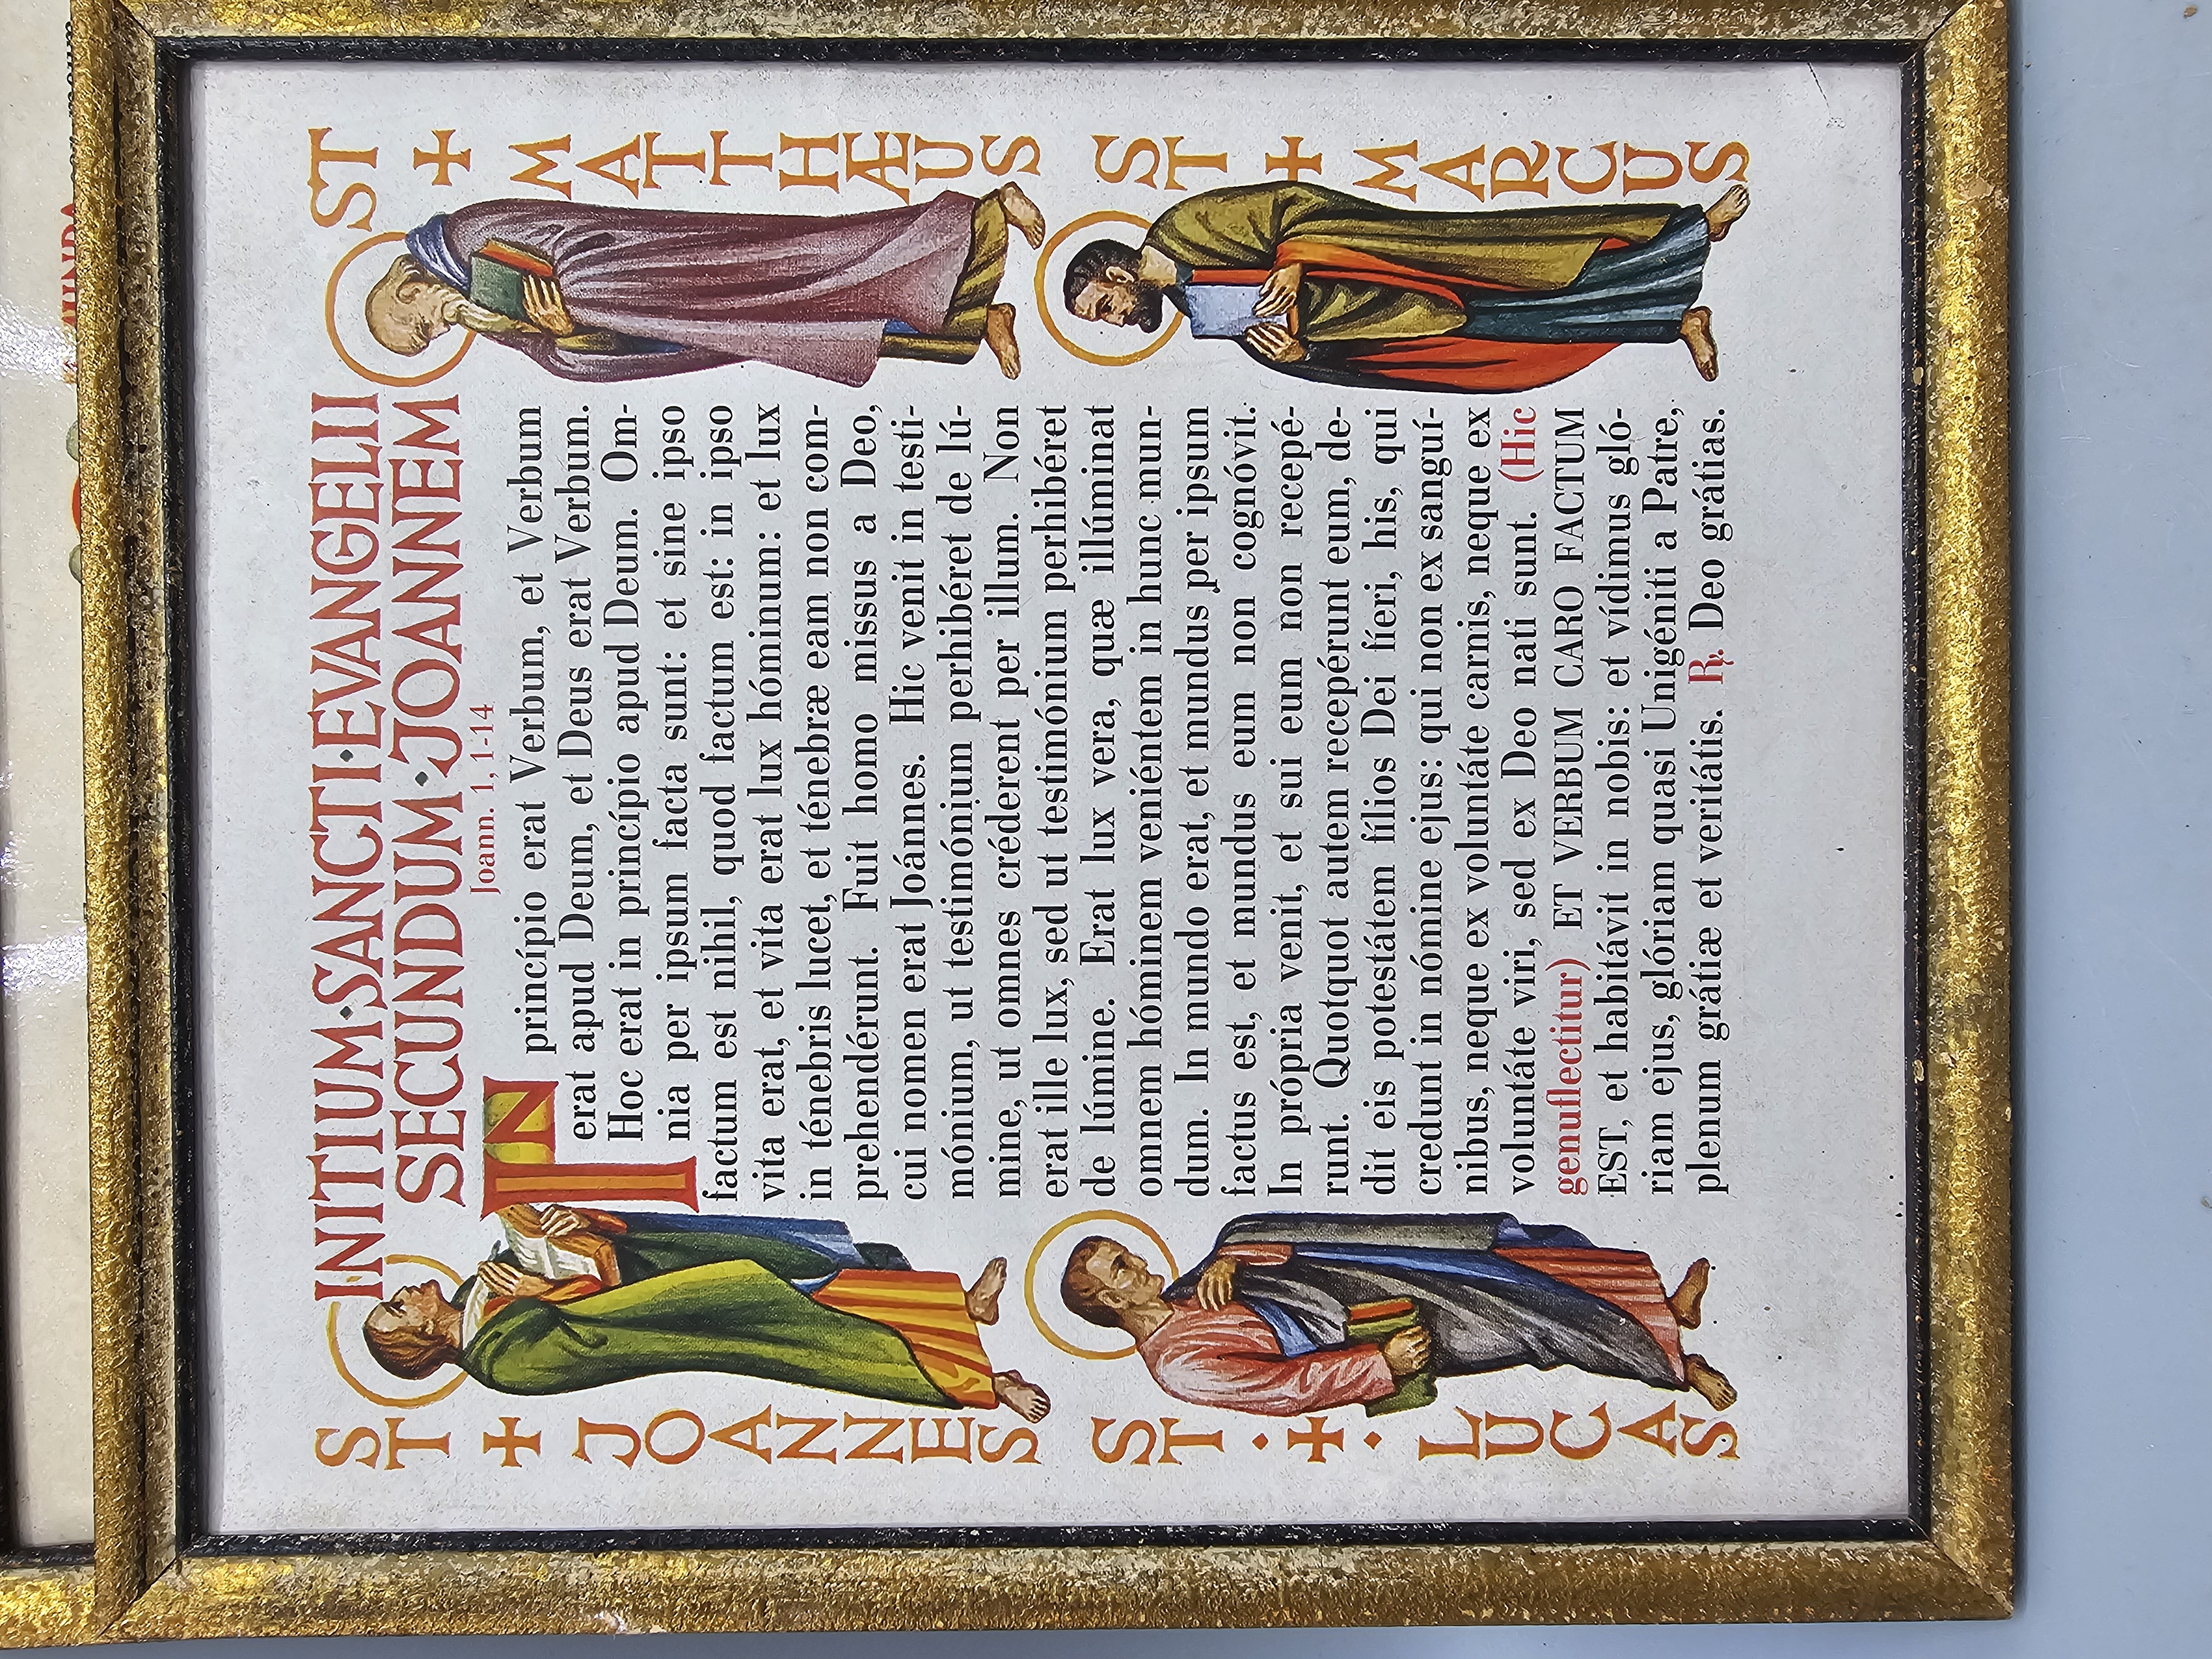 INITIUM·SANCTI·EVANGELII
SECUNDUM·JOANNEM
Joann. 1, 1-14
IN princípio erat Verbum, et Verbum
erat apud Deum, et Deus erat Verbum.
Hoc erat in princípio apud Deum. Om-
nia per ipsum facta sunt: et sine ipso
factum est nihil, quod factum est: in ipso
vita erat, et vita erat lux hóminum: et lux
in ténebris lucet, et ténebræ eam non com-
prehendérunt. Fuit homo missus a Deo,
cui nomen erat Joánnes. Hic venit in testi-
mónium, ut testimónium perhibéret de lú-
mine, ut omnes créderent per illum. Non
erat ille lux, sed ut testimónium perhibéret
de lúmine. Erat lux vera, quæ illúminat
omnem hóminem veniéntem in hunc mun-
dum. In mundo erat, et mundus per ipsum
factus est, et mundus eum non cognóvit.
In própria venit, et sui eum non recepé-
runt. Quotquot autem recepérunt eum, de-
dit eis potestátem fílios Dei fíeri, his, qui
credunt in nómine ejus: qui non ex sanguí-
nibus, neque ex voluntáte carnis, neque ex
voluntáte viri, sed ex Deo nati sunt. (Hic
genuflectitur) ET VERBUM CARO FACTUM
EST, et habitávit in nobis: et vídimus gló-
riam ejus, glóriam quasi Unigéniti a Patre,
plenum grátiæ et veritátis. ℟. Deo grátias.
ST + JOANNES
ST·+·LUCAS
ST + MATTHÆUS
ST + MARCUS